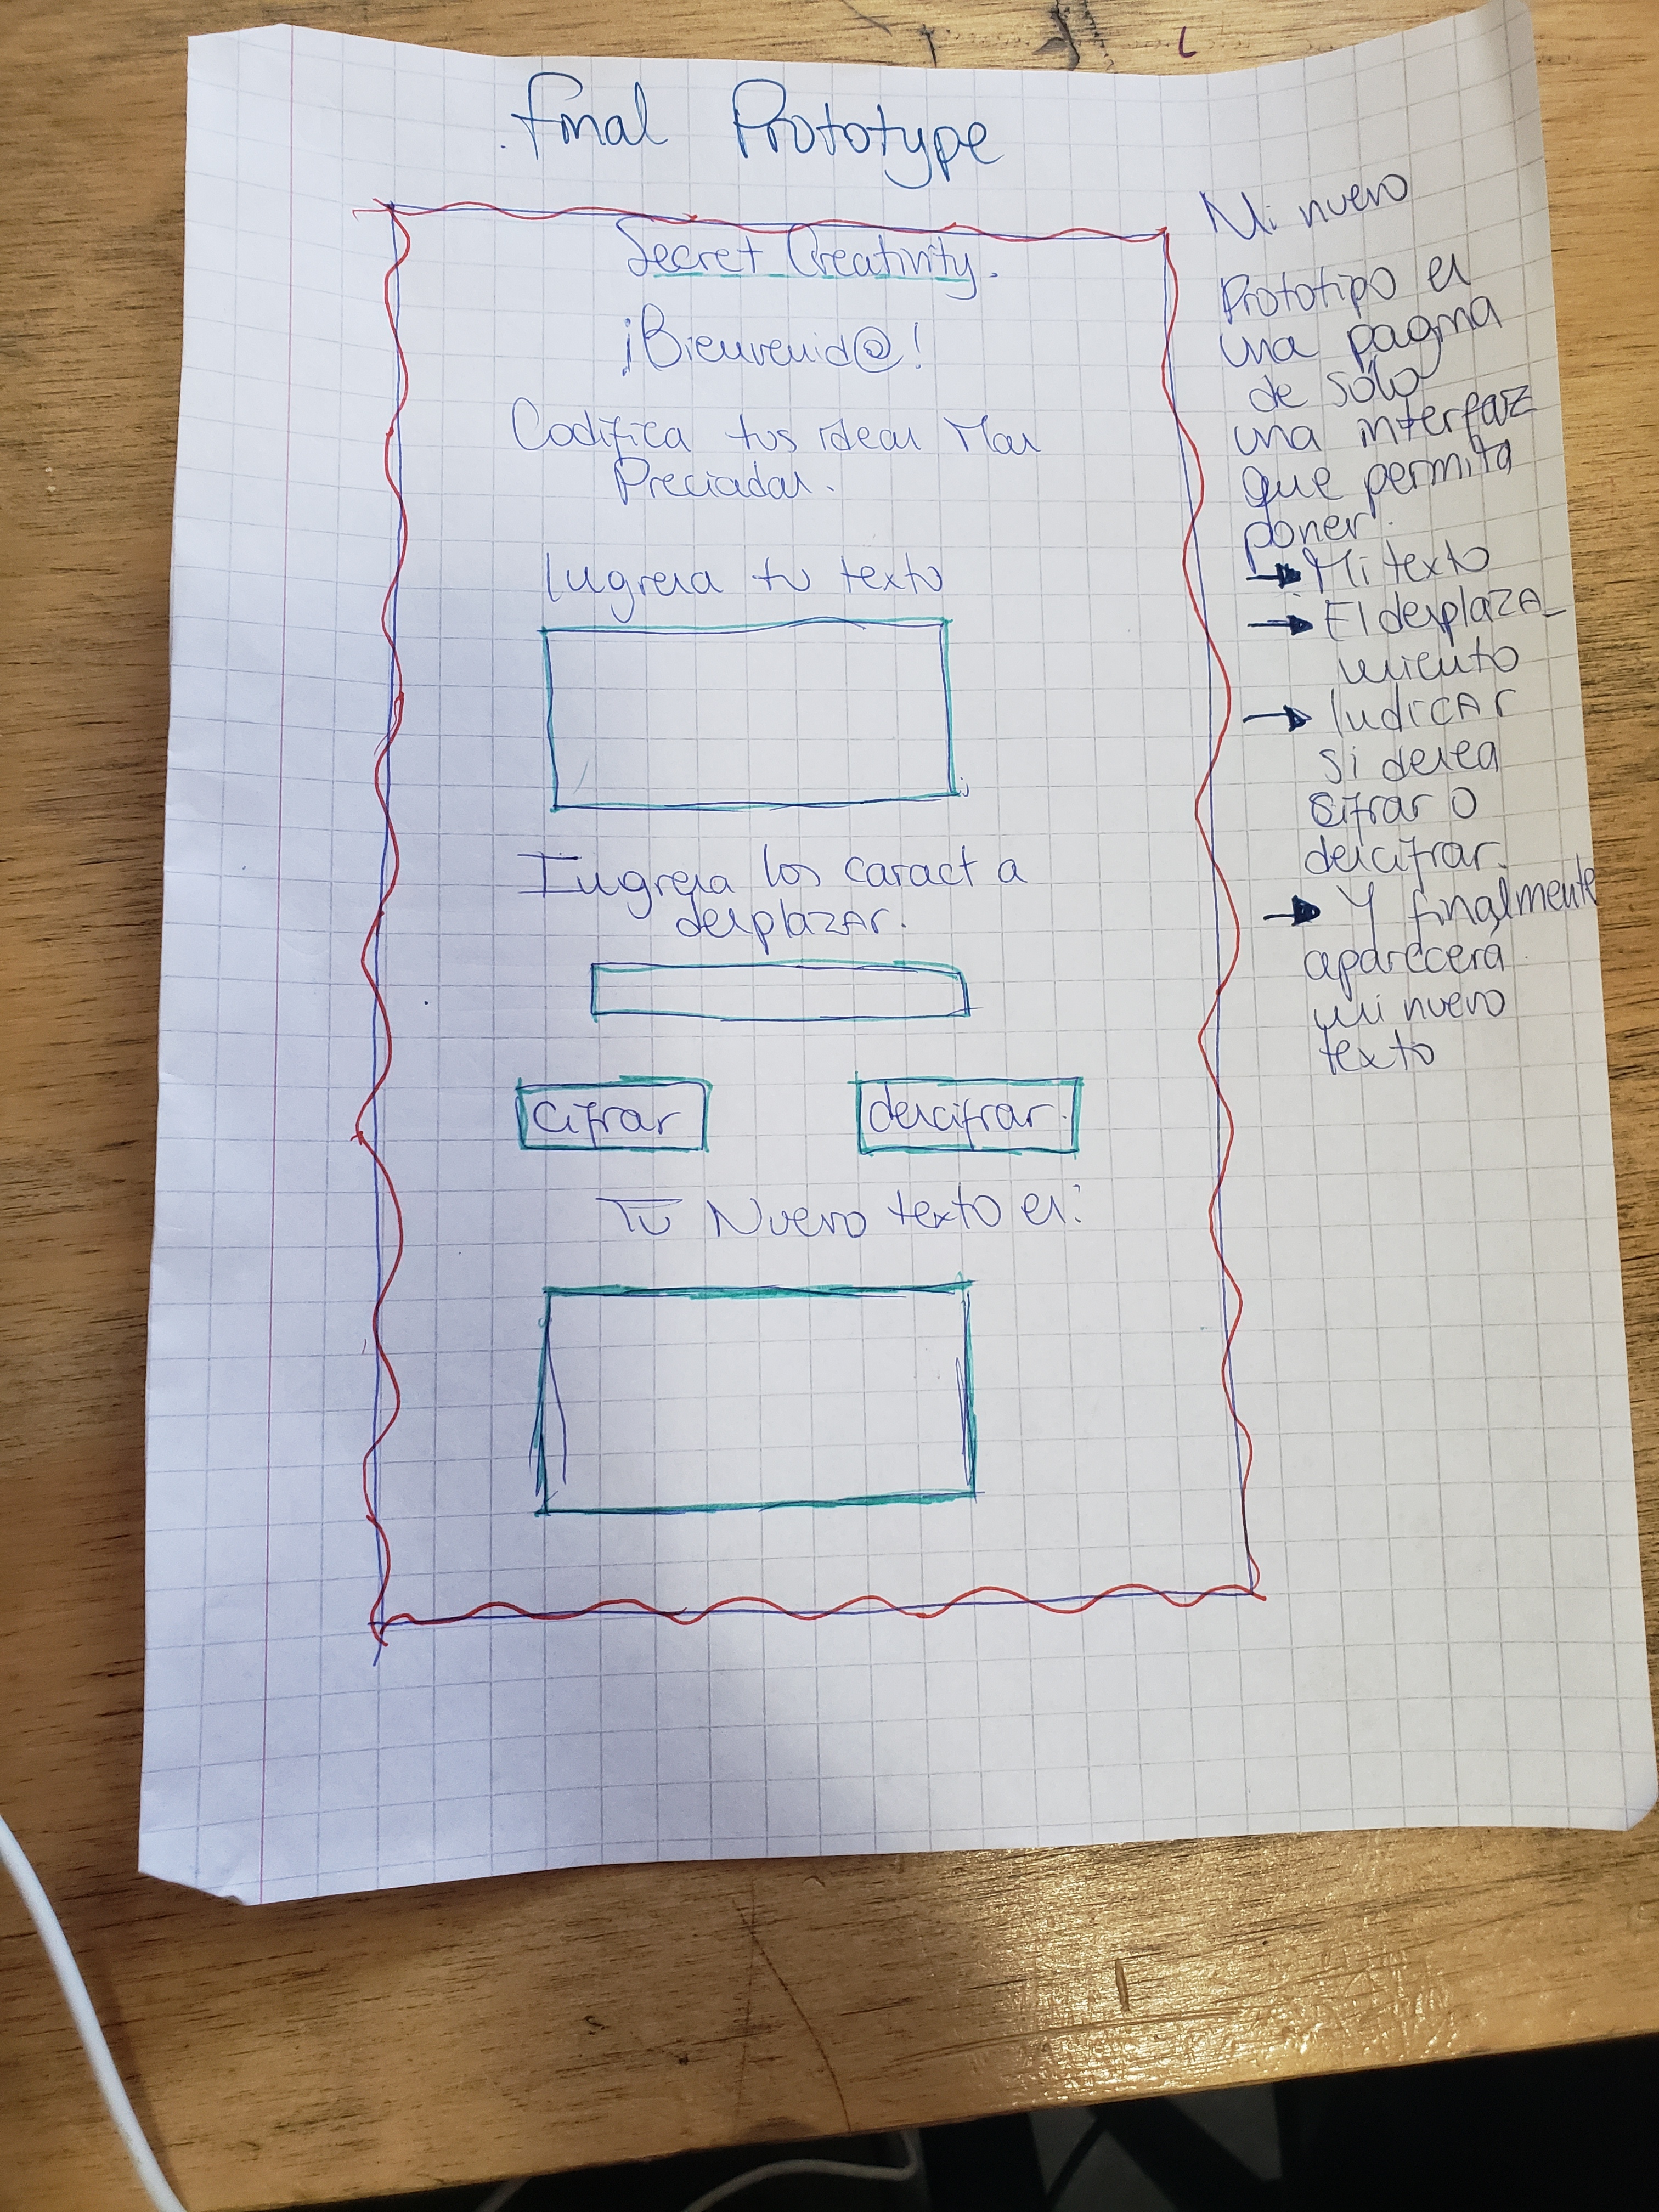 Final Prototype
Secret Creativity.
¡Bienvenid@!
Codifica tus ideas Mas
Preciadas.
Ingresa tu texto
Ingresa los caract a
desplazar.
cifrar
descifrar.
Tu Nuevo texto es:
Mi nuevo
Prototipo es
una pagina
de sólo
una interfaz
que permita
poner:
→ Mi texto
→ El desplaza_
miento
→ Indicar
si desea
cifrar o
descifrar.
→ Y finalmente
aparecera
mi nuevo
texto